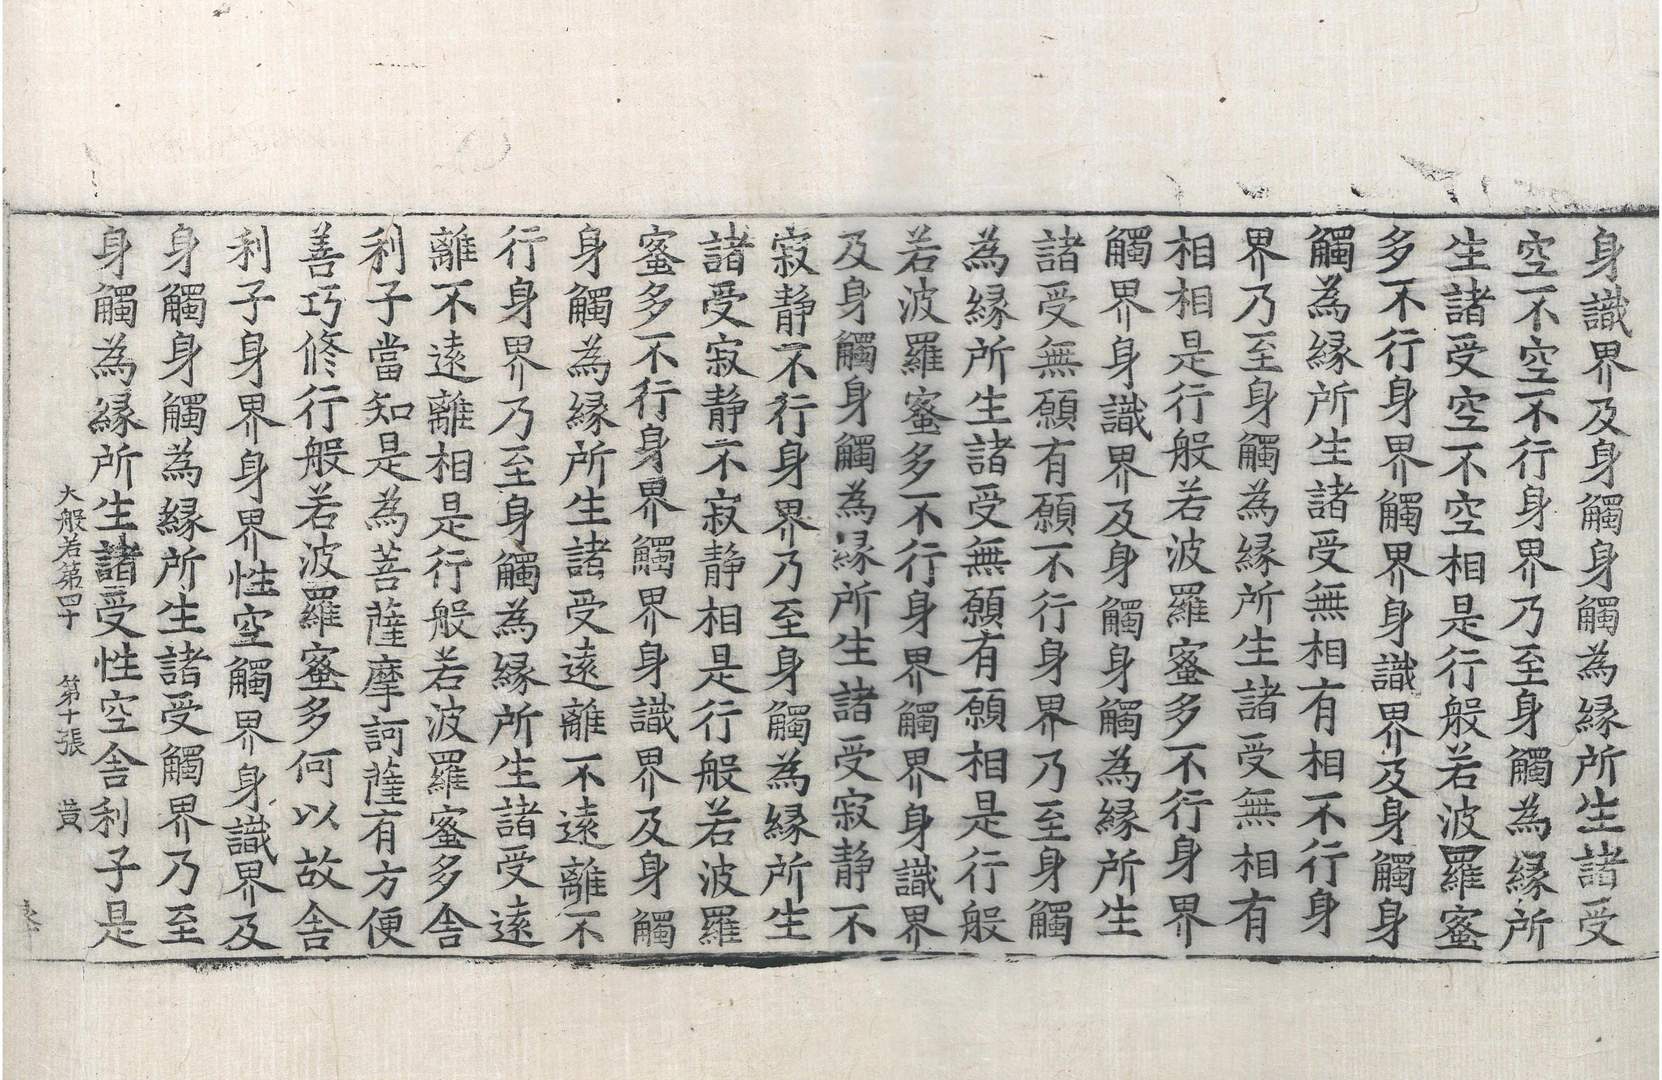 身識界及身觸身觸為緣所生諸受
空不空不行身界乃至身觸為緣所
生諸受空不空相是行般若波羅蜜
多不行身界觸界身識界及身觸身
觸為緣所生諸受無相有相不行身
界乃至身觸為緣所生諸受無相有
相相是行般若波羅蜜多不行身界
觸界身識界及身觸身觸為緣所生
諸受無願有願不行身界乃至身觸
為緣所生諸受無願有願相是行般
若波羅蜜多不行身界觸界身識界
及身觸身觸為緣所生諸受寂静不
寂静不行身界乃至身觸為緣所生
諸受寂静不寂静相是行般若波羅
蜜多不行身界觸界身識界及身觸
身觸為緣所生諸受遠離不遠離不
行身界乃至身觸為緣所生諸受遠
離不遠離相是行般若波羅蜜多舍
利子當知是為菩薩摩訶薩有方便
善巧修行般若波羅蜜多何以故舍
利子身界身界性空觸界身識界及
身觸身觸為緣所生諸受觸界乃至
身觸為緣所生諸受性空舍利子是
大般若第四十 第十張 黄